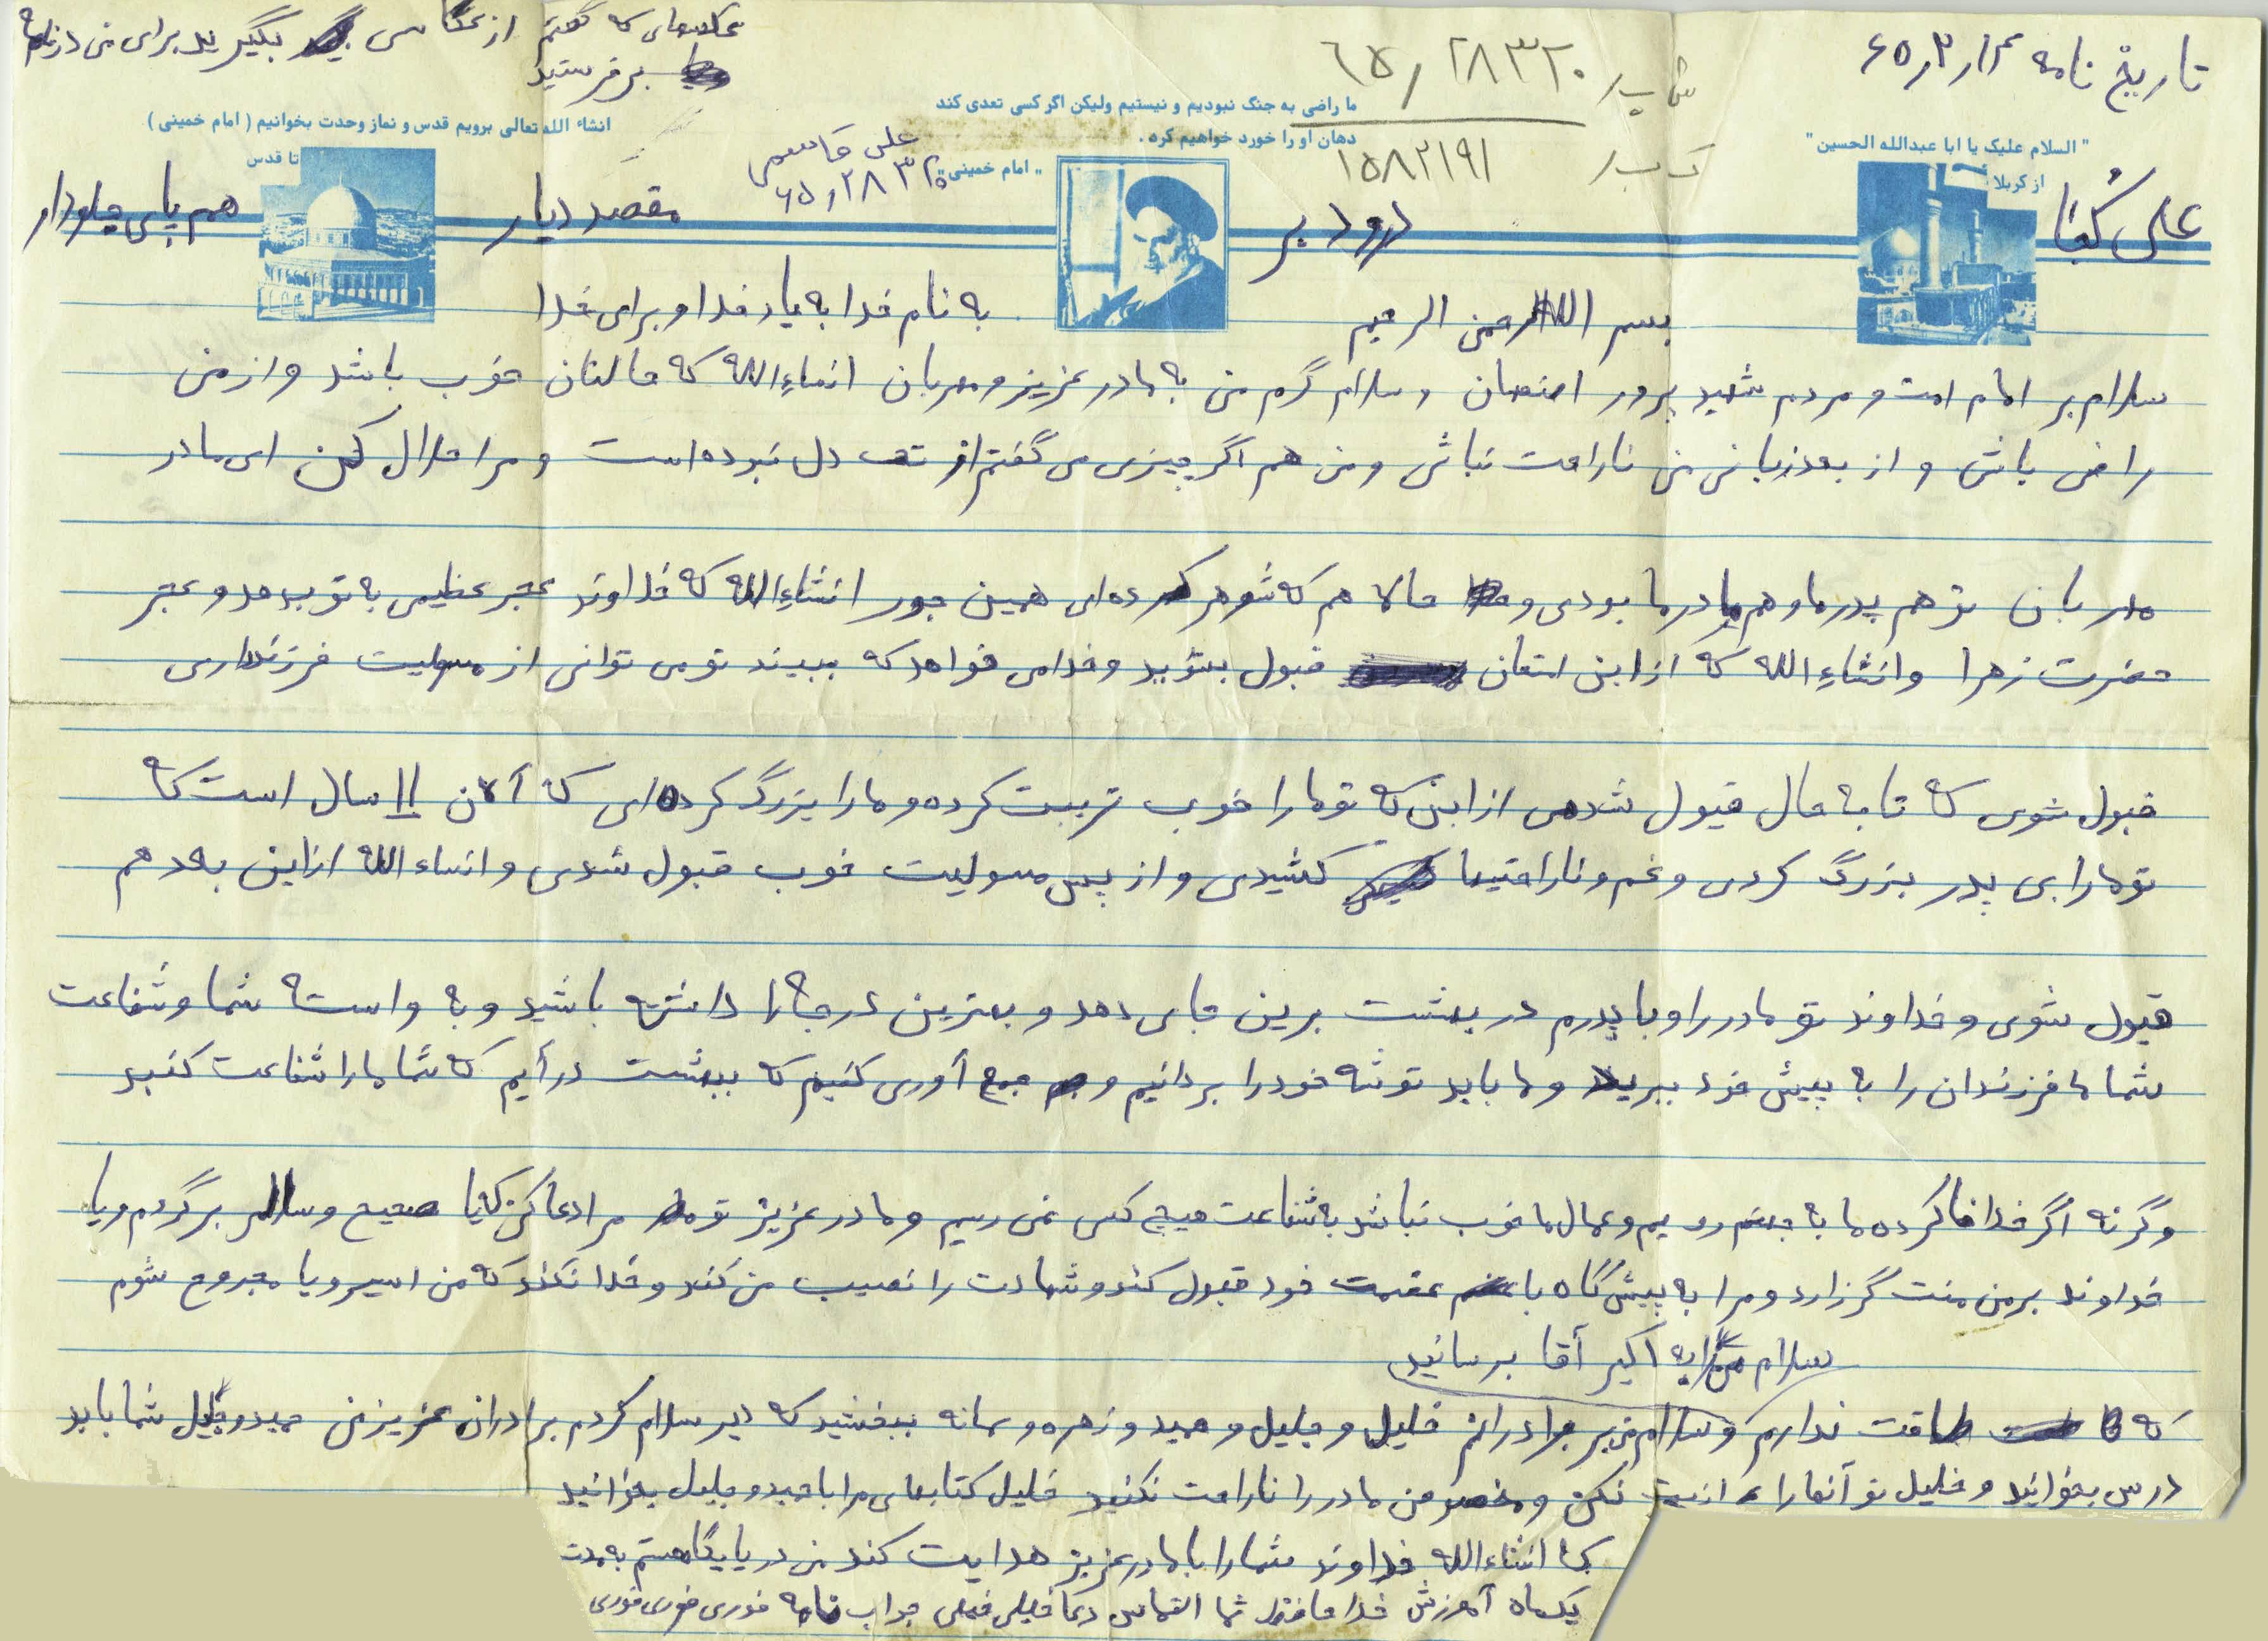 تاریخ نامه ۶۵/۲/۱۴
ش پ/ ۶۵/۲۸۳۲۰
ک ب/ ۱۵۸۲۱۹۱
عکسهای که گفتم از عکاسی بگیرید برای من در نامه
بفرستید
ما راضی به جنگ نبودیم و نیستیم ولیکن اگر کسی تعدی کند
دهان او را خورد خواهیم کرد.
"امام خمینی"
انشاء الله تعالی برویم قدس و نماز وحدت بخوانیم (امام خمینی)
"السلام علیک یا ابا عبدالله الحسین"
از کربلا
تا قدس
علی قاسمی
۶۵/۲۸۳۲۰
علی گفتا درود بر مقصد دیار هم پای جلودار
بسم الله الرحمن الرحیم به نام خدا به یاد خدا و برای خدا
سلام بر امام امت و مردم شهید پرور اصفهان و سلام گرم من به مادر عزیز و مهربان انشاءالله که حالتان خوب باشد و از من
راضی باش و از بعدزبانی من ناراحت نباش و من هم اگر چیزی می گفتم از ته دل نبوده است و مرا حلال کن ای مادر
مهربان تو هم پدر ما و هم مادر ما بودی و حالا هم که شوهر کرده ای همین جور انشاءالله که خداوند عجر عظیمی به تو بدهد و عجر
حضرت زهرا وانشاءالله که از این امتحان قبول بشوید و خدا می خواهد که ببیند تو می توانی از مسولیت فرزنداری
قبول شوی که تا به حال قبول شدهی از این که تو ما را خوب تربیت کرده و ما را بزرگ کرده ای که آلان ۱۱ سال است که
تو ما را بی پدر بزرگ کردی و غم و ناراحتیها کشیدی و از پس مسولیت خوب قبول شدی و انشاء الله از این به بعد هم
قبول شوی و خداوند تو مادر را و با پدرم در بهشت برین جای دهد و بهترین درجه را داشته باشید و به واسته شما و شفاعت
شما ما فرزندان را به پیش خود ببرید و ما باید توشه خود را بردانیم و جمع آوری کنیم که ببهشت در آیم که شما ما را شفاعت کنید
وگرنه اگر خدا ناکرده ما به جهنم رویم و عمال ما خوب نباشد به شفاعت هیچ کس نمی رسیم و مادر عزیز تو مرا دعا کن که یا صحیح و سالم برگردم و یا
خداوند بر من منت گزارد و مرا به پیش گاه با عضمت خود قبول کند و شهادت را نصیب من کند و خدا نکند که من اسیر و یا مجروح شوم
سلام مرا به اکبر آقا برسانید
که طاقت ندارم و سلام من بر برادرانم خلیل و جلیل و حمید و زهره و سمانه ببخشید که دیر سلام کردم برادران عزیز من حمید و جلیل شما باید
درس بخوانید و خلیل تو آنها را ازیت نکن و مخصوصن مادر را ناراحت نکنید خلیل کتابهای مرا با حمید و جلیل بخوانید
که انشاءالله خداوند شما را با مادر عزیز هدایت کند من در پایگاه هستم به مدت
یکماه آموزش خدا حافظ شما التماس دعا خیلی خیلی جواب نامه فوری فوری فوری